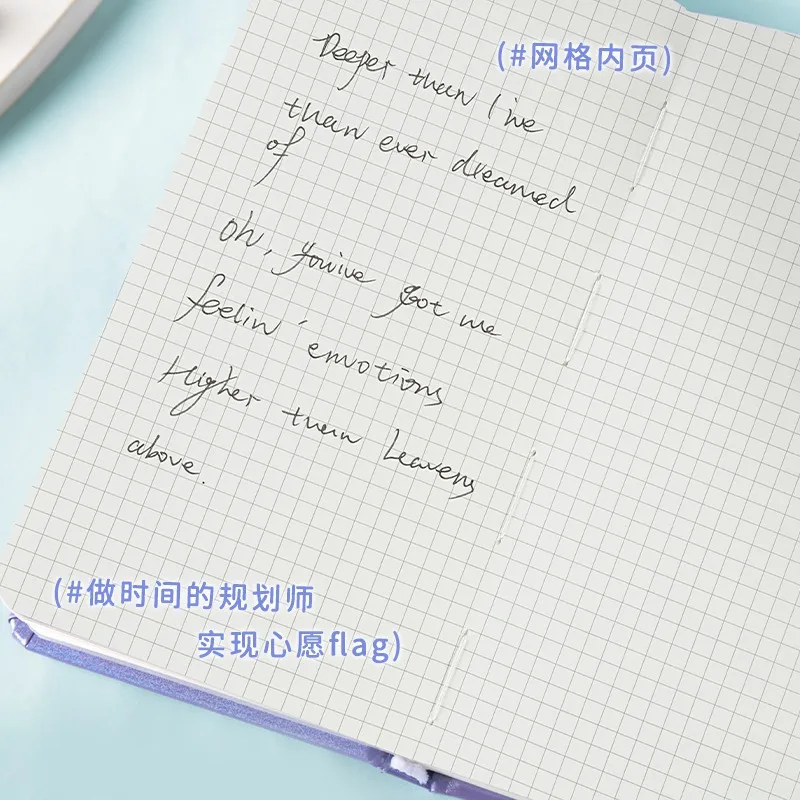 (#网格内页)
Deeper than I've
than ever dreamed
of
Oh, you've got me
feelin' emotions
Higher than heavens
above.
(#做时间的规划师
实现心愿flag)